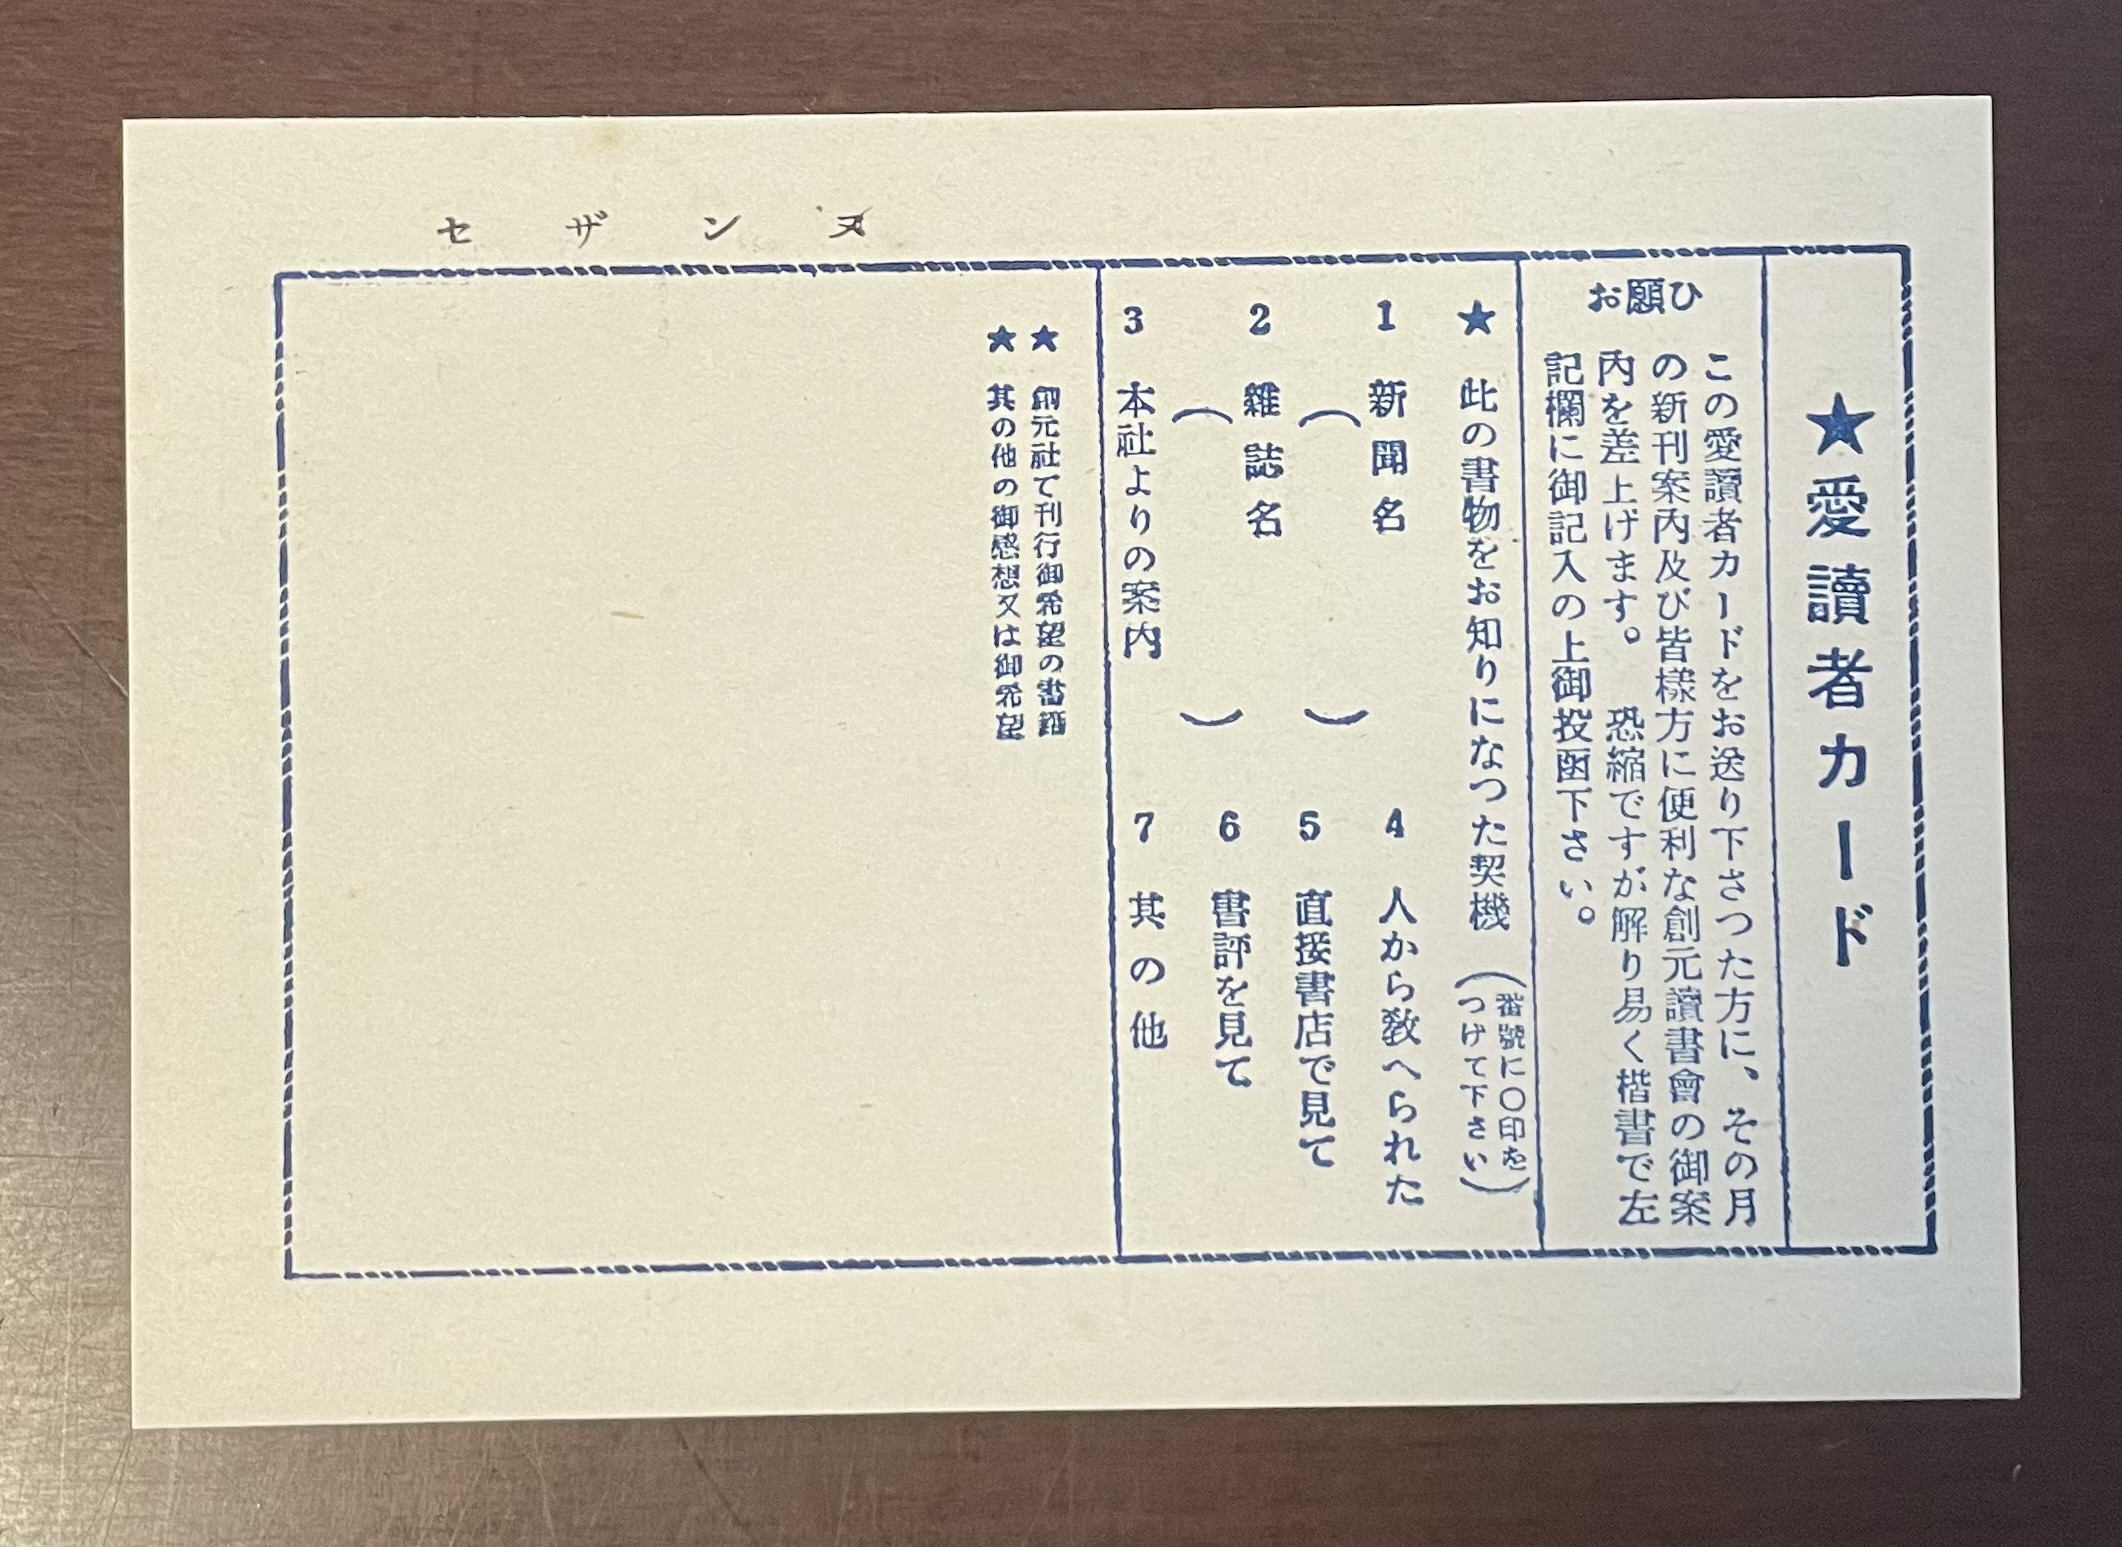 セザンヌ
★愛讀者カード
お願ひ
この愛讀者カードをお送り下さつた方に、その月
の新刊案内及び皆様方に便利な創元讀書會の御案
内を差上げます。 恐縮ですが解り易く楷書で左
記欄に御記入の上御投函下さい。
★ 此の書物をお知りになつた契機 (番號に〇印を
つけて下さい)
1 新聞名
( )
2 雜誌名
( )
3 本社よりの案内
4 人から敎へられた
5 直接書店で見て
6 書評を見て
7 其の他
★ 創元社で刊行御希望の書籍
★ 其の他の御感想又は御希望